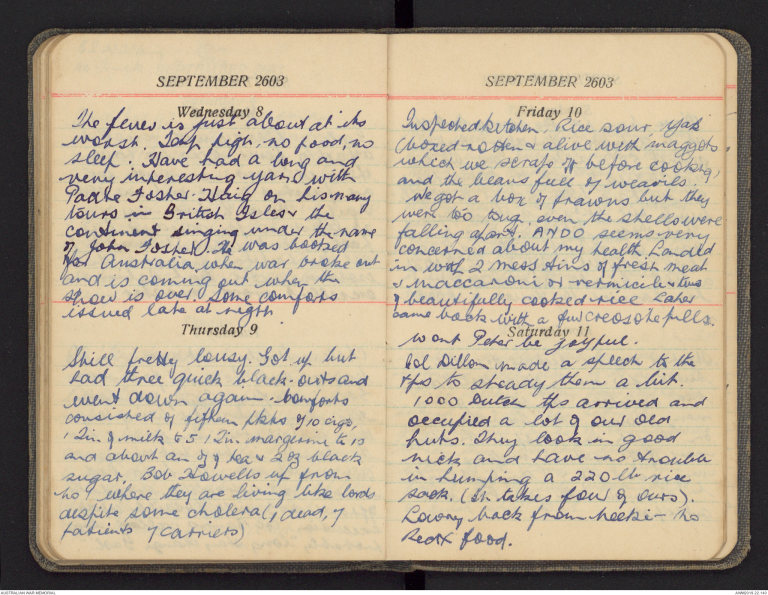 SEPTEMBER 2603
Wednesday 8
The fever is just about at its
worst. Temp high, no food, no
sleep. Have had a long and
very interesting yarn with
Padre Fosher-Haig on his many
tours in British Isles & the
continent singing under the name
of John Foster. He was booked
for Australia when war broke out
and is coming out when the
show is over. Some comforts
issued late at night
Thursday 9
Still pretty lousy. Got up but
had three quick black-outs and
went down again. Comforts
consisted of fifteen pkts of 10 cigs,
1 2in of milk to 5 1 2in margerine to 15
and about an of tea & 2 oz black
sugar. Bob Howells up from
No 1 where they are living like lords
despite some cholera (1 dead, 7
patients 7 carriers)
SEPTEMBER 2603
Friday 10
Inspected kitchen. Rice sour, Yak
(boxed rotten & alive with maggots
which we scrape off before cooking,
and the beans full of weavils.
We got a box of prawns but they
were too tug even the shells were
falling apart. ANDO seems very
concerned about my health. Landed
in with 2 mess tins of fresh meat
& maccaroni or vermicile & two
of beautifully cooked rice. Later
came back with a few creosote pills.
Saturday 11
Wont Peter be joyful.
Col Dillon made a speech to the
tps to steady them a bit.
1000 Dutch tps arrived and
occupied a lot of our old
huts. They look in good
nick and have no trouble
in humping a 220lb rice
sack. (It takes four of ours).
Lowry back from Neeki - No
Redx food.
AUSTRALIAN WAR MEMORIAL